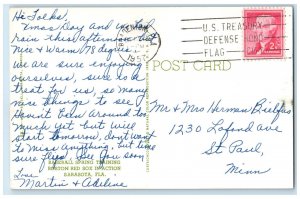 Hi Folks,
Xmas Day and
train this afternoon but
nice & warm 78 degrees.
We are sure enjoying
ourselves, sure is a
treat for us, so many
nice things to see.
Havent been around too
much yet but will
start tomorrow, dont want
to miss anything, but time
sure flies. See you soon
Love
Martin & Adeline
BASEBALL SPRING TRAINING
BOSTON RED SOX IN ACTION
SARASOTA, FLA.
POST CARD
U.S. TREASURY
DEFENSE
FLAG
2¢
Mr & Mrs Herman
1230 Lafond ave
St Paul,
Minn